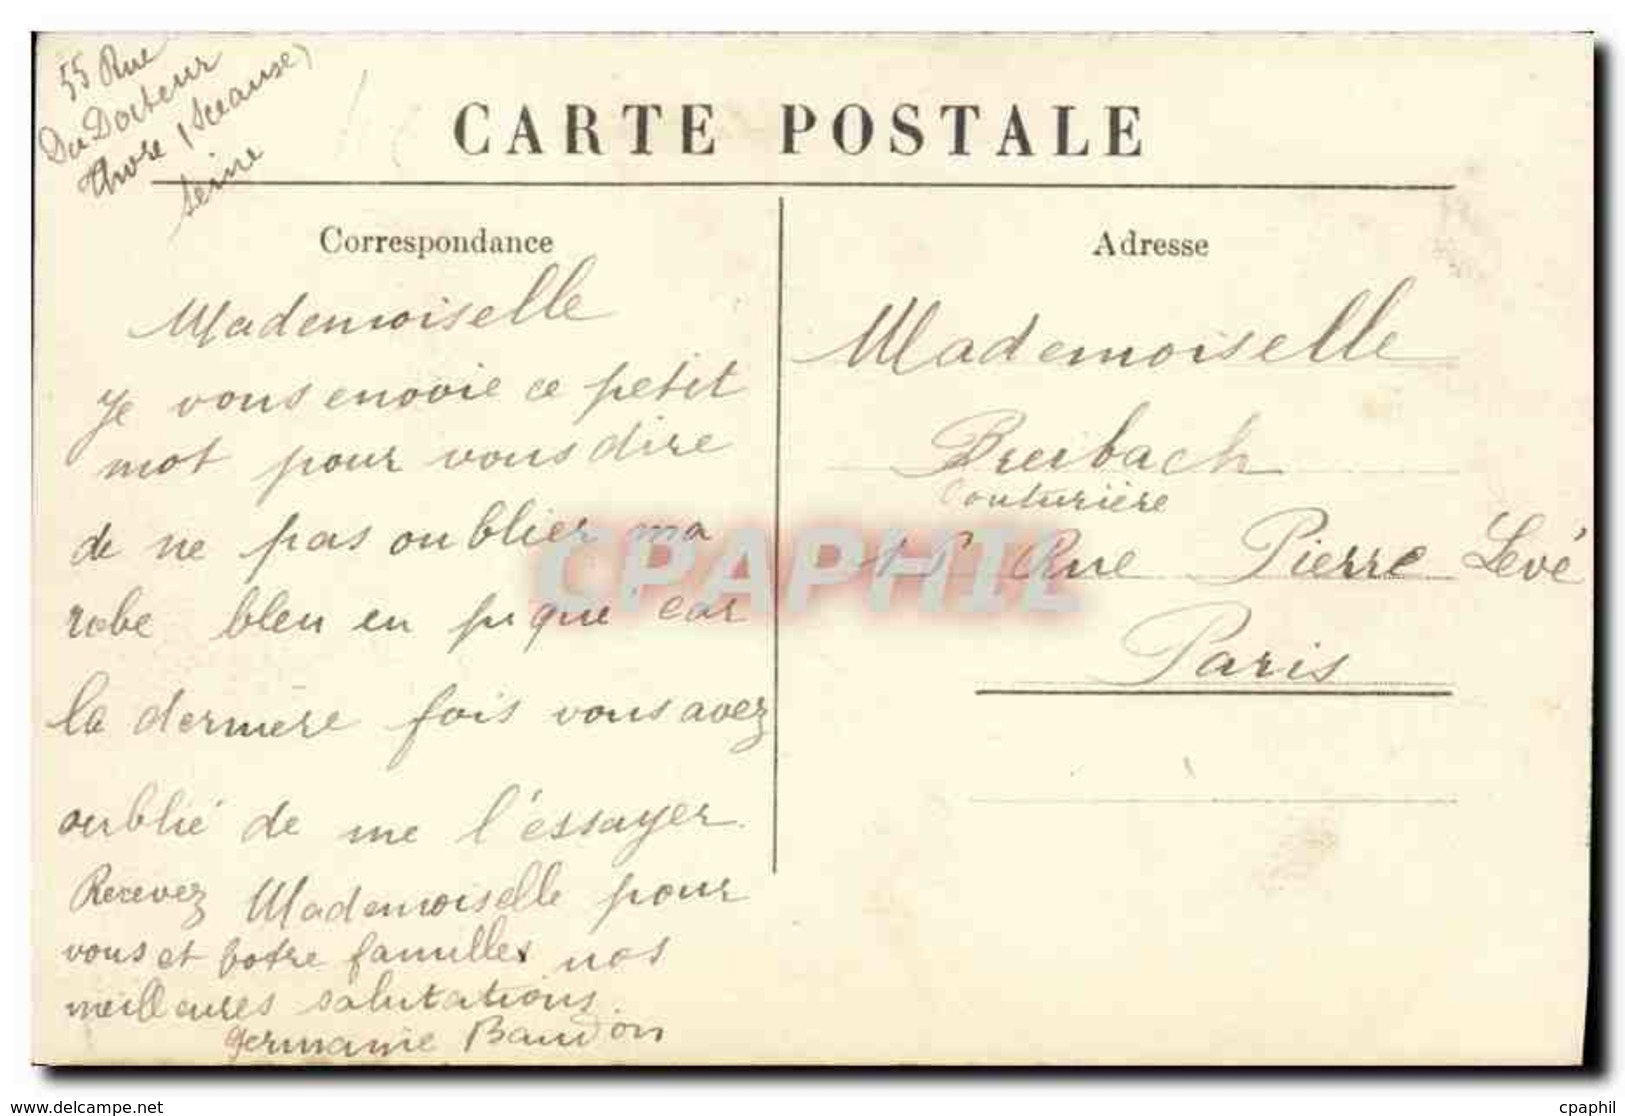 55 Rue
Du Docteur
Thore (Sceaux)
Seine
CARTE POSTALE
Correspondance
Adresse
Mademoiselle
Je vous enovie ce petit
mot pour vous dire
de ne pas oublier ma
robe bleu en piqué car
la derniere fois vous avez
oublié de me l'éssayer.
Recevez Mademoiselle pour
vous et votre familles nos
meilleures salutations
Germanie Baudon
Mademoiselle
Breibach
Couturière
15 Rue Pierre Levé
Paris
CPAPHIL
www.delcampe.net
cpaphil